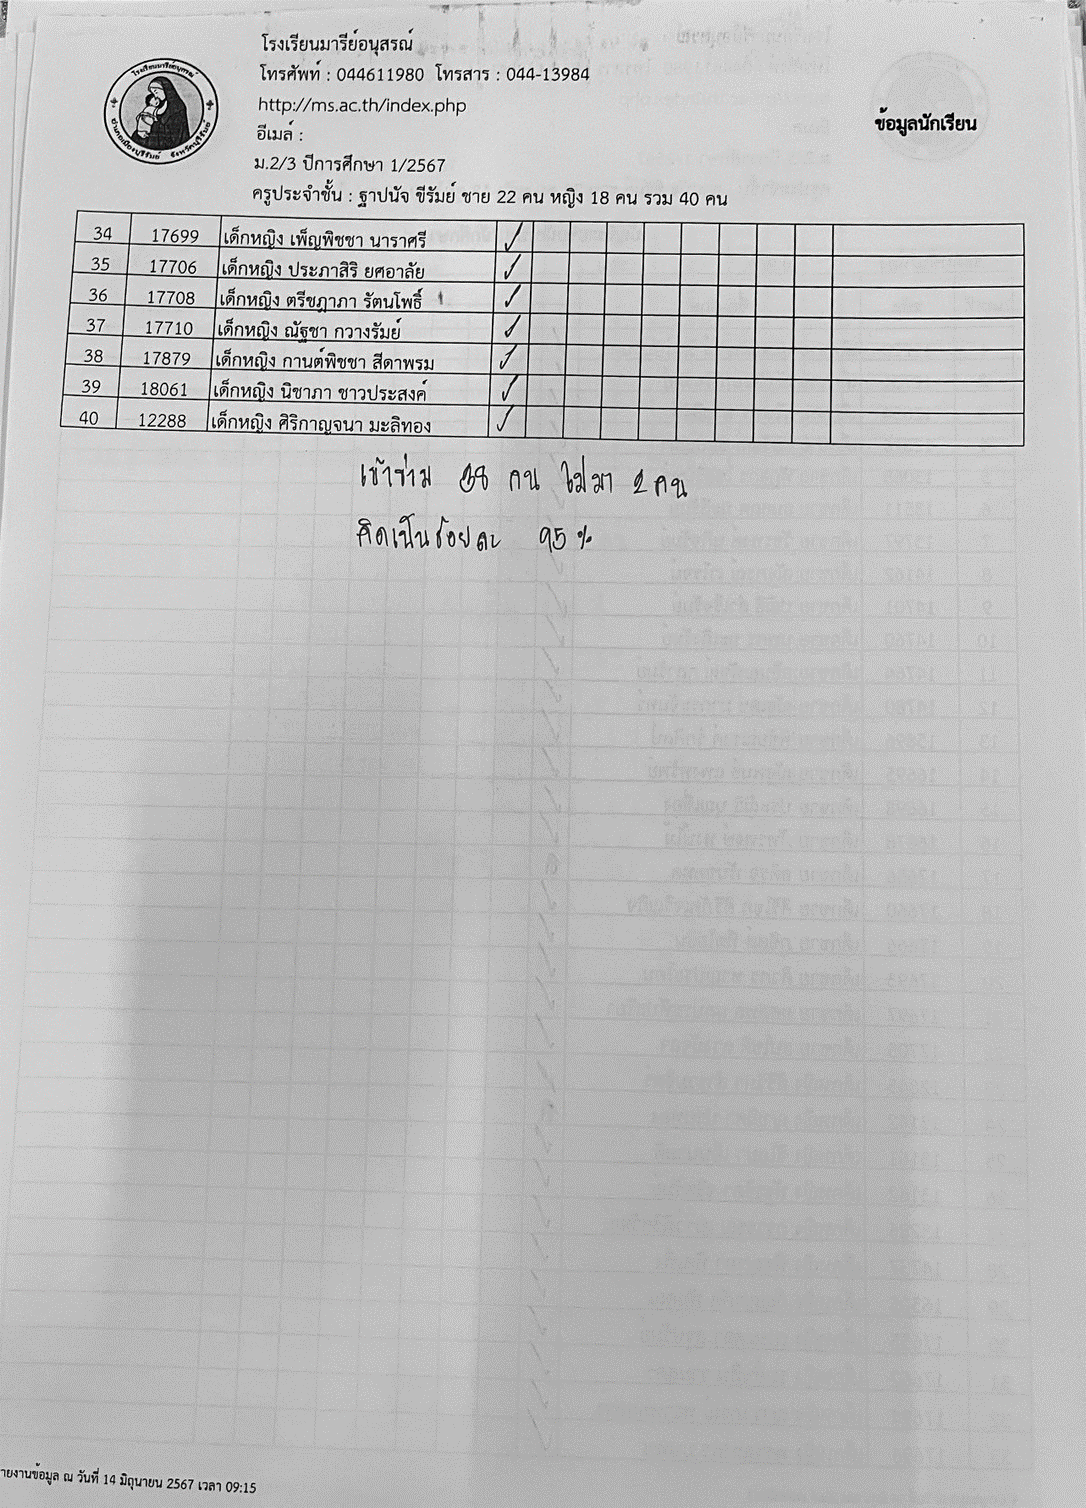 โรงเรียนมารีย์อนุสรณ์
โทรศัพท์ : 044611980 โทรสาร : 044-13984
http://ms.ac.th/index.php
อีเมล์ :
ม.2/3 ปีการศึกษา 1/2567
ครูประจำชั้น : ฐาปนัจ ขีรัมย์ ชาย 22 คน หญิง 18 คน รวม 40 คน
ข้อมูลนักเรียน
โรงเรียนมารีย์อนุสรณ์
อำเภอเมืองบุรีรัมย์ จังหวัดบุรีรัมย์
34 17699 เด็กหญิง เพ็ญพิชชา นาราศรี ✓
35 17706 เด็กหญิง ประภาสิริ ยศอาลัย ✓
36 17708 เด็กหญิง ตรีชฎาภา รัตนโพธิ์ ✓
37 17710 เด็กหญิง ณัฐชา กวางรัมย์ ✓
38 17879 เด็กหญิง กานต์พิชชา สีดาพรม ✓
39 18061 เด็กหญิง นิชาภา ชาวประสงค์ ✓
40 12288 เด็กหญิง ศิริกาญจนา มะลิทอง ✓
เข้าร่วม 38 คน ไม่มา 2 คน
คิดเป็นร้อยละ 95 %
ายงานข้อมูล ณ วันที่ 14 มิถุนายน 2567 เวลา 09:15